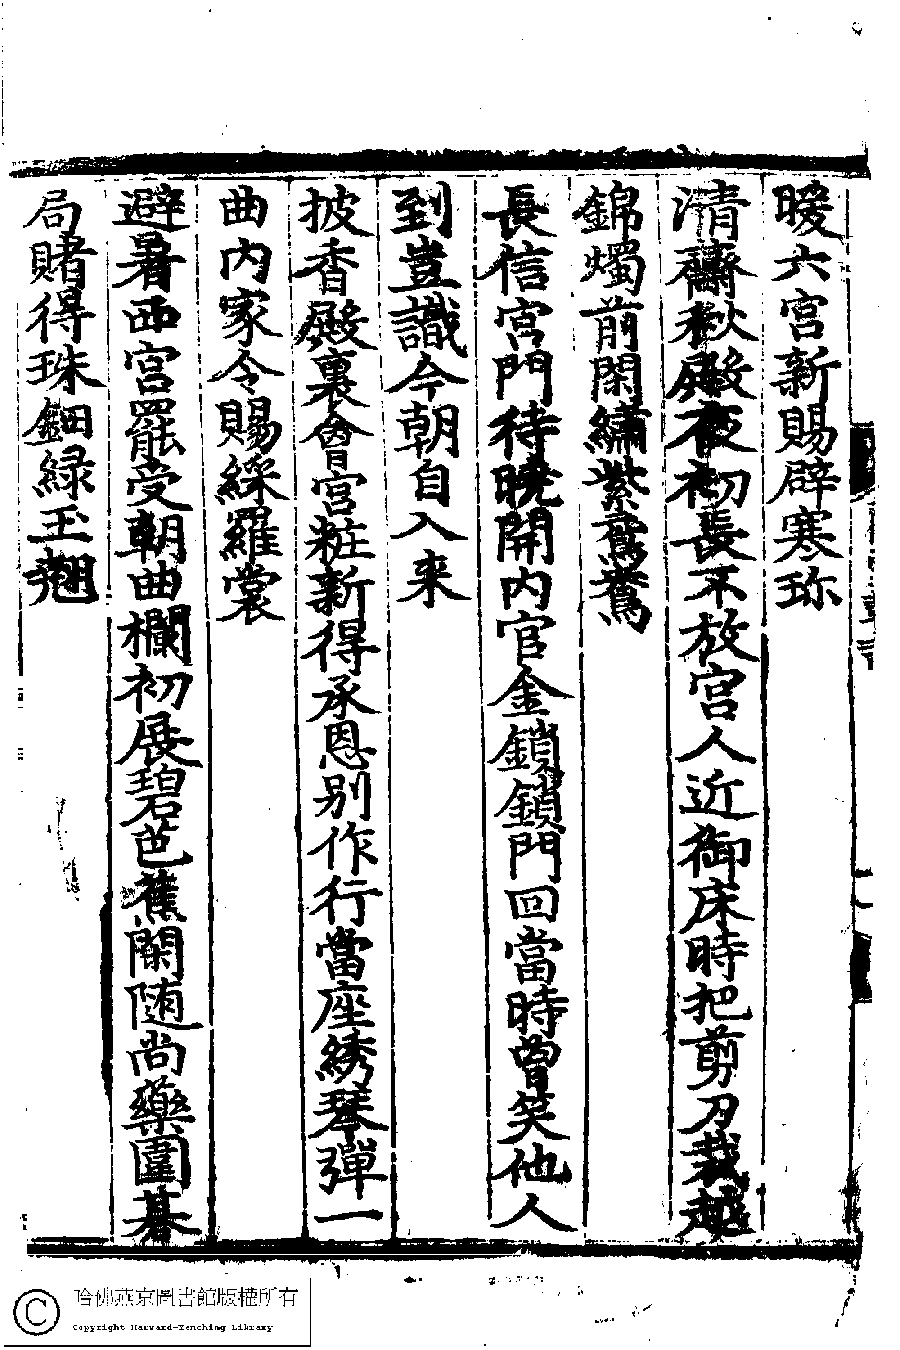 暖六宮新賜辟寒珎
清齋秋殿夜初長不放宮人近御床時把剪刀裁越
錦燭前閑繡紫鴛鴦
長信宮門待曉開内官金鎖鎖門回當時曾笑他人
到豈識今朝自入来
披香殿裏會宮粧新得承恩别作行當座綉琴彈一
曲内家令賜綵羅裳
避暑西宮罷受朝曲欄初展碧芭蕉閑随尚藥圍棊
局賭得珠鈿緑玉翹
哈佛燕京圖書館版權所有
Copyright Harvard-Yenching Library